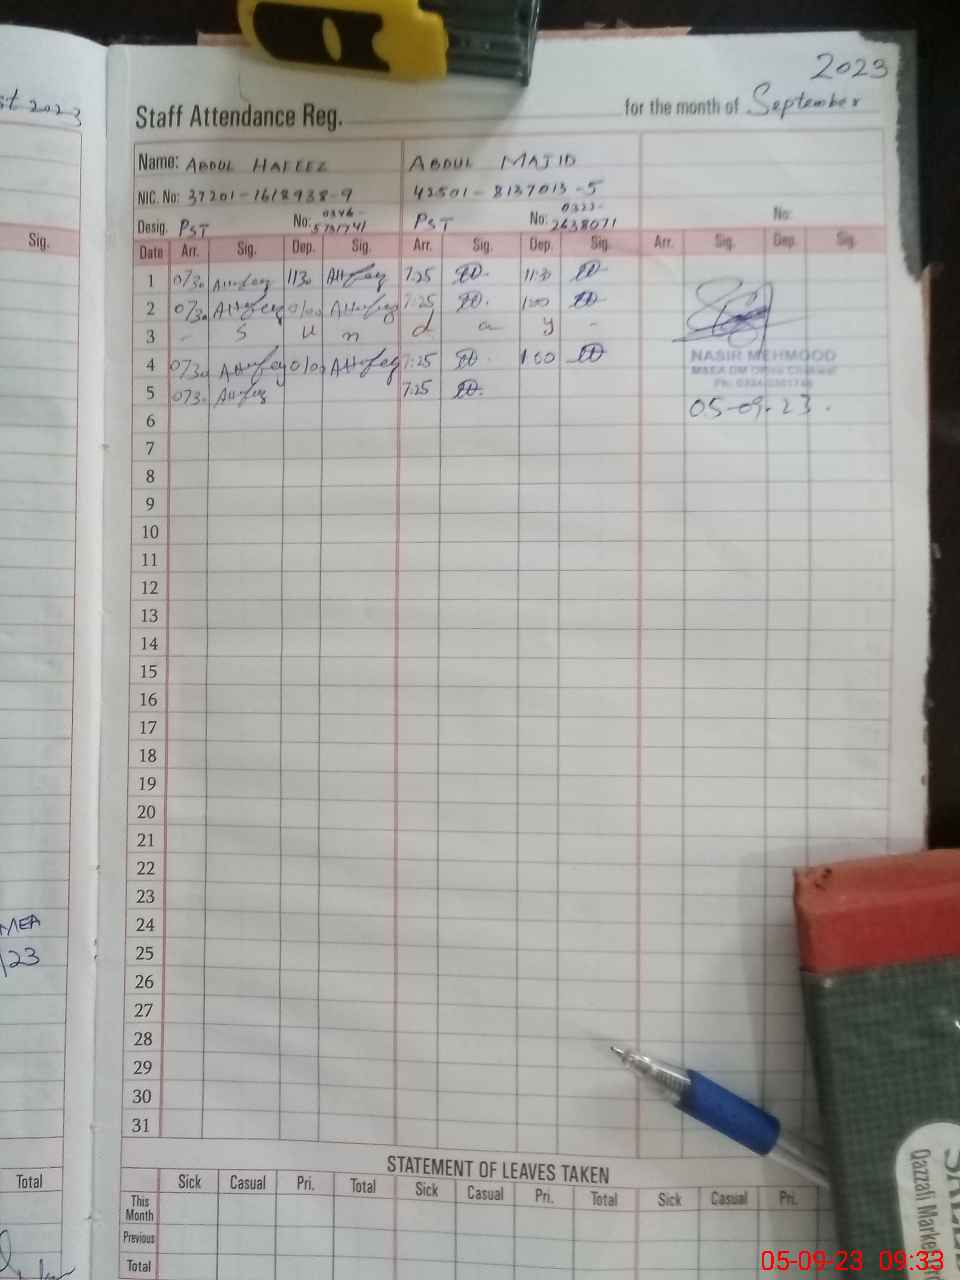 st 2023
2023
Staff Attendance Reg. for the month of September
Name: ABDUL HAFEEZ ABDUL MAJID
NIC. No: 37201-1618938-9 42501-8137013-5
Desig. PST No: 0346-5731741 PST No: 0323-2638071 No:
Sig. Date Arr. Sig. Dep. Sig. Arr. Sig. Dep. Sig. Arr. Sig. Dep. Sig.
1 0730 1130 7:25 11:30
2 0730 0100 7:25 1:00
3 - S u n d a y -
4 0730 0100 7:25 1:00
NASIR MEHMOOD
5 0730 7:25
05-09-23.
6
7
8
9
10
11
12
13
14
15
16
17
18
19
20
21
22
23
24
MEA
25
/23
26
27
28
29
30
31
STATEMENT OF LEAVES TAKEN
Total Sick Casual Pri. Total Sick Casual Pri. Total Sick Casual Pri.
This Month
Previous
Total
Qazzafi Marke
05-09-23 09:33